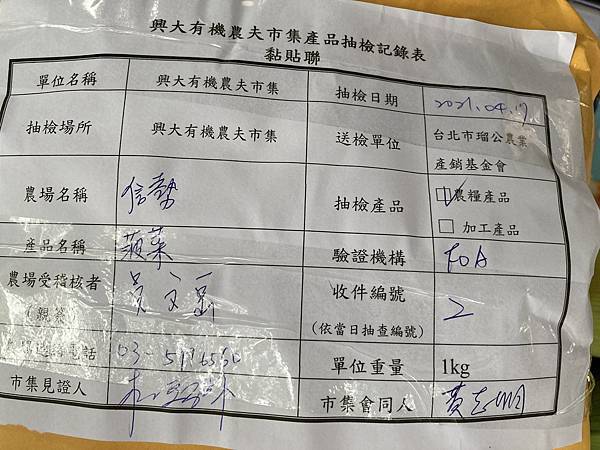 興大有機農夫市集產品抽檢記錄表
黏貼聯
單位名稱 興大有機農夫市集 抽檢日期 2021.04.17
抽檢場所 興大有機農夫市集 送檢單位 台北市瑠公農業
產銷基金會
農場名稱 信勢 抽檢產品 農糧產品
加工產品
產品名稱 蔬菜 驗證機構 FOA
農場受稽核者 收件編號 2
(親簽) (依當日抽查編號)
電話 單位重量 1kg
市集見證人 市集會同人 黃志明